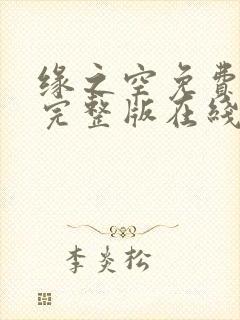 缘之空免费
完整版在线
李炎松